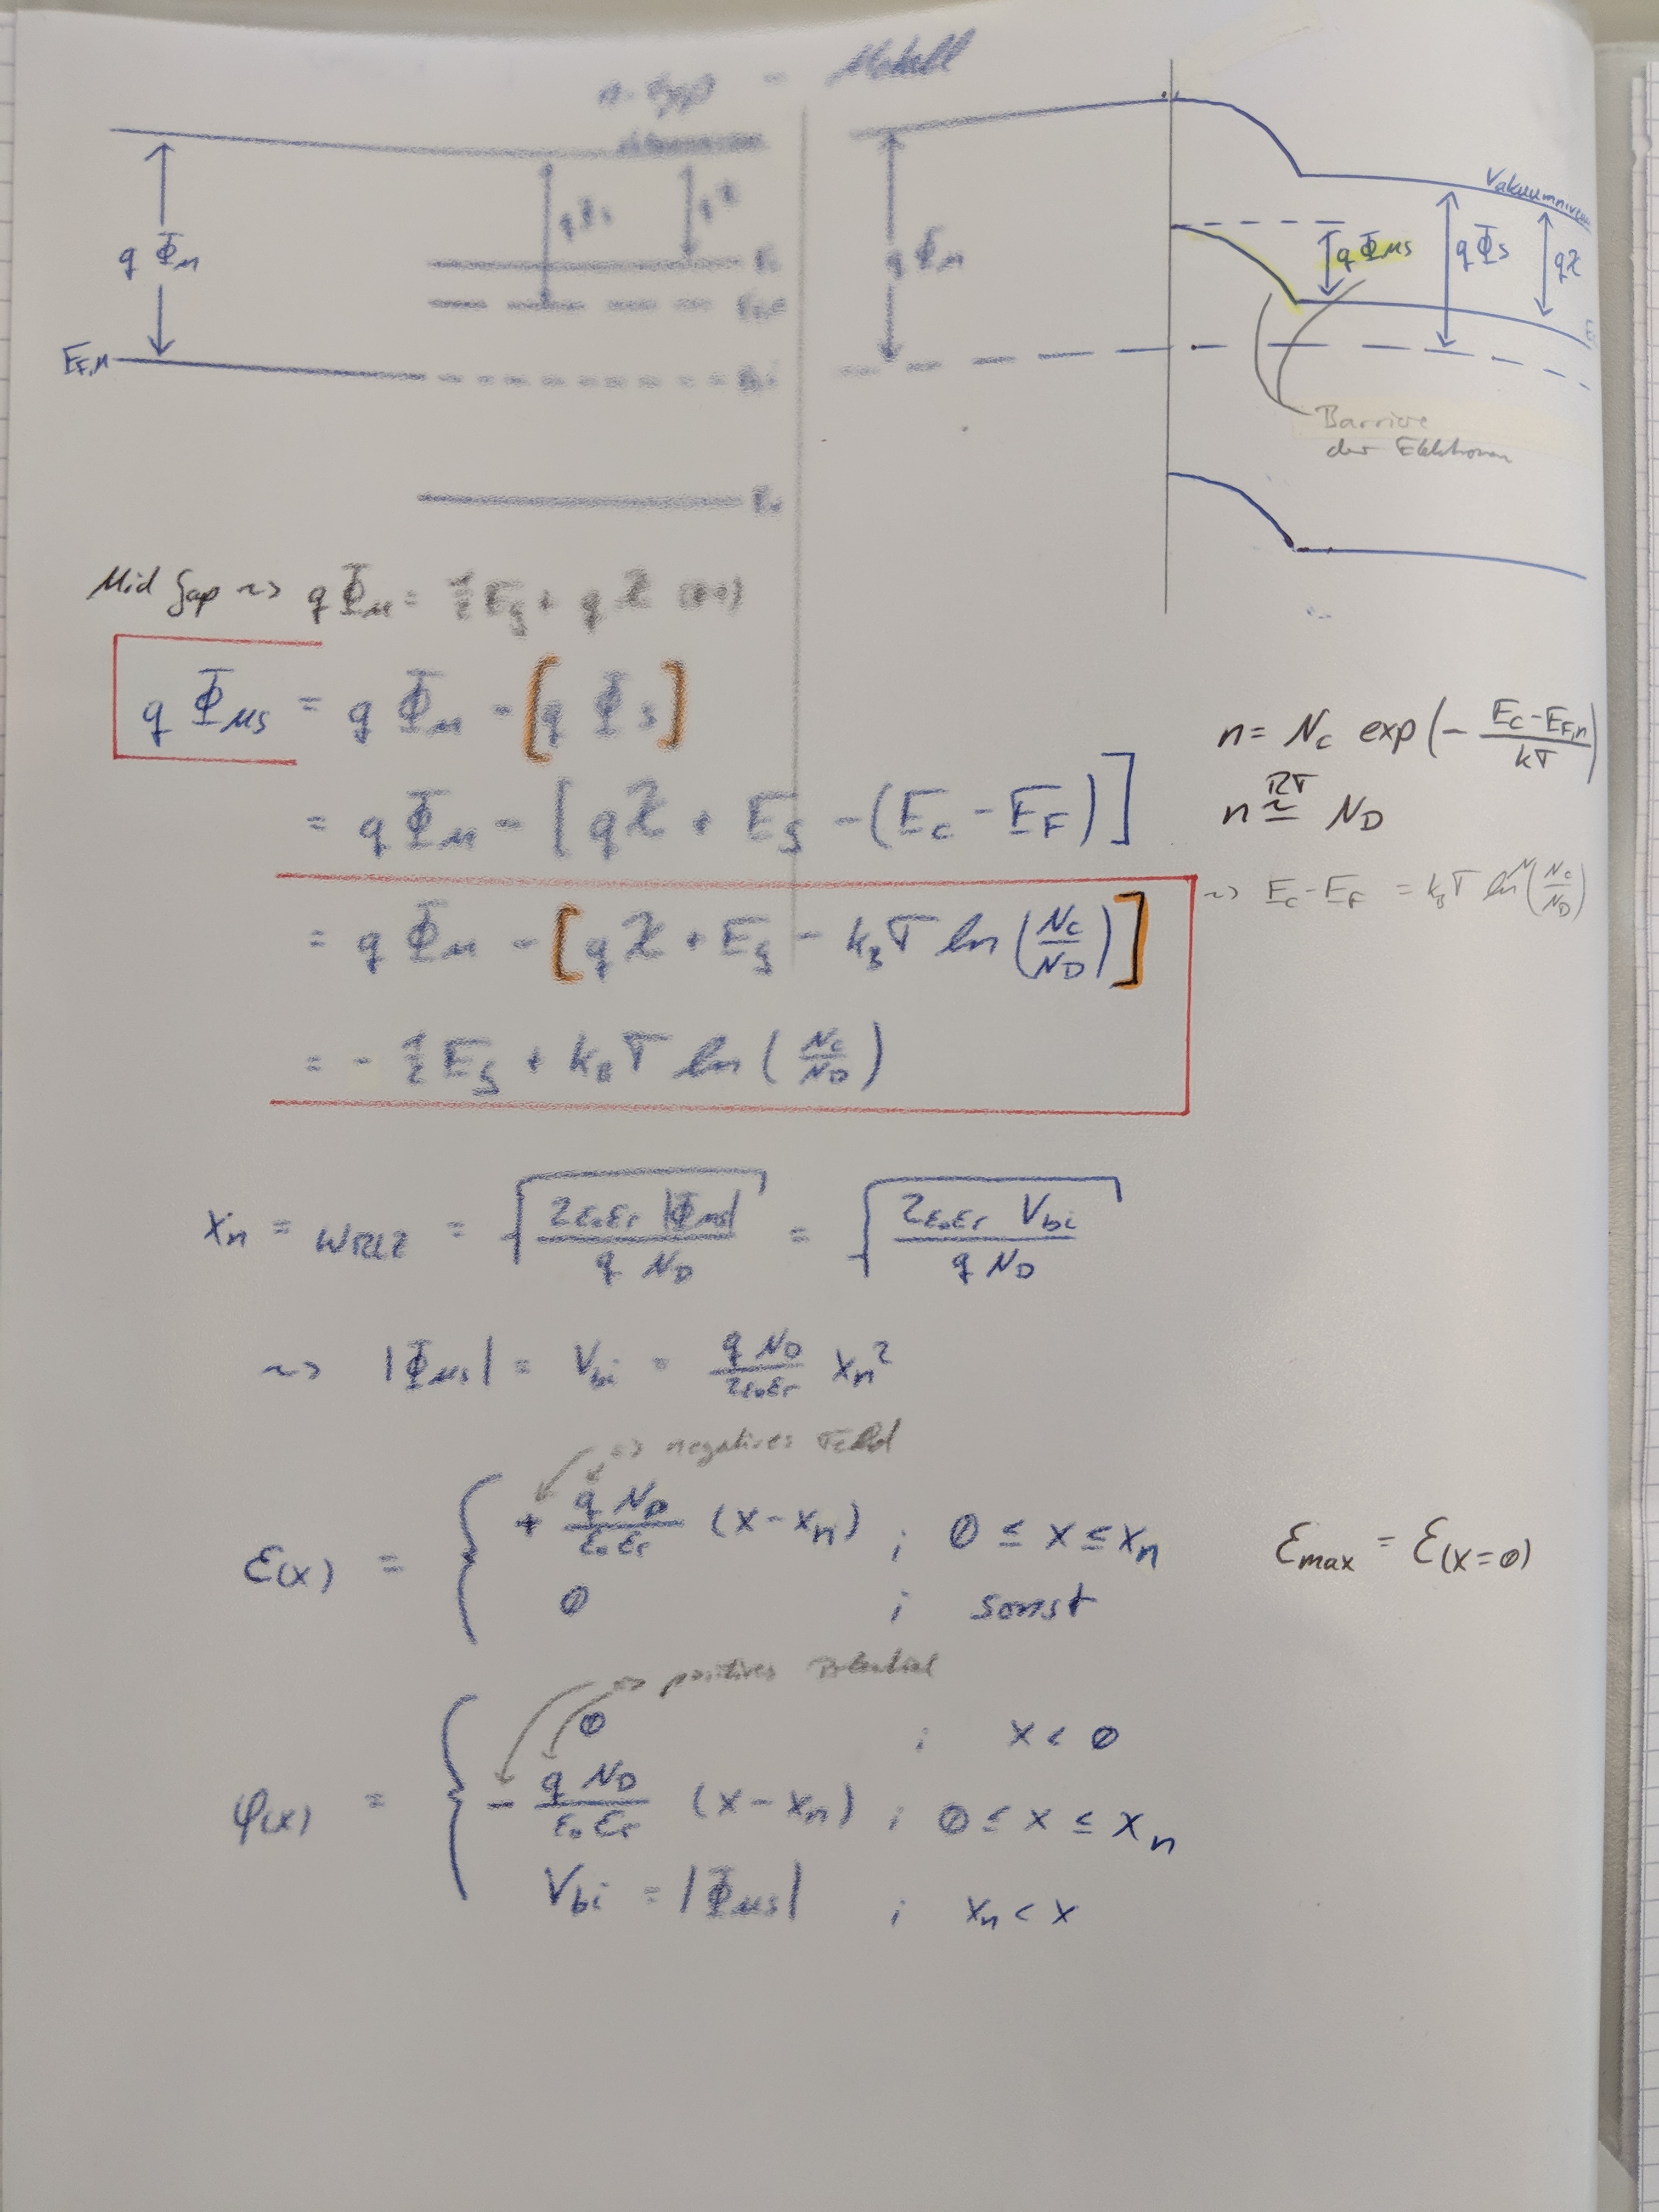 n-typ – Metall
Vakuumniveau
q Φ_M
q χ
q Φ_M
q Φ_MS
q Φ_S
q χ
E_F,M
Barriere
der Elektronen
Mid gap ~> q Φ_M = ½ E_g + q χ
q Φ_MS = q Φ_M - [q Φ_S]
= q Φ_M - [q χ + E_g - (E_C - E_F)]
= q Φ_M - [q χ + E_g - k_B T ln(N_C/N_D)]
= - ½ E_g + k_B T ln(N_C/N_D)
n = N_C exp(- (E_C - E_F,n)/kT)
n ≃^RT N_D
~> E_C - E_F = k_B T ln(N_C/N_D)
x_n = w_RLZ = √(2ε₀εr |Φ_MS| / q N_D) = √(2ε₀εr V_bi / q N_D)
~> |Φ_MS| = V_bi = q N_D/2ε₀εr x_n²
=> negatives Feld
ℰ(x) = { + q N_D/ε₀εr (x - x_n) ; 0 ≤ x ≤ x_n
0 ; sonst
ℰ_max = ℰ(x=0)
=> positives Potential
φ(x) = { 0 ; x < 0
- q N_D/ε₀εr (x - x_n) ; 0 ≤ x ≤ x_n
V_bi = |Φ_MS| ; x_n < x